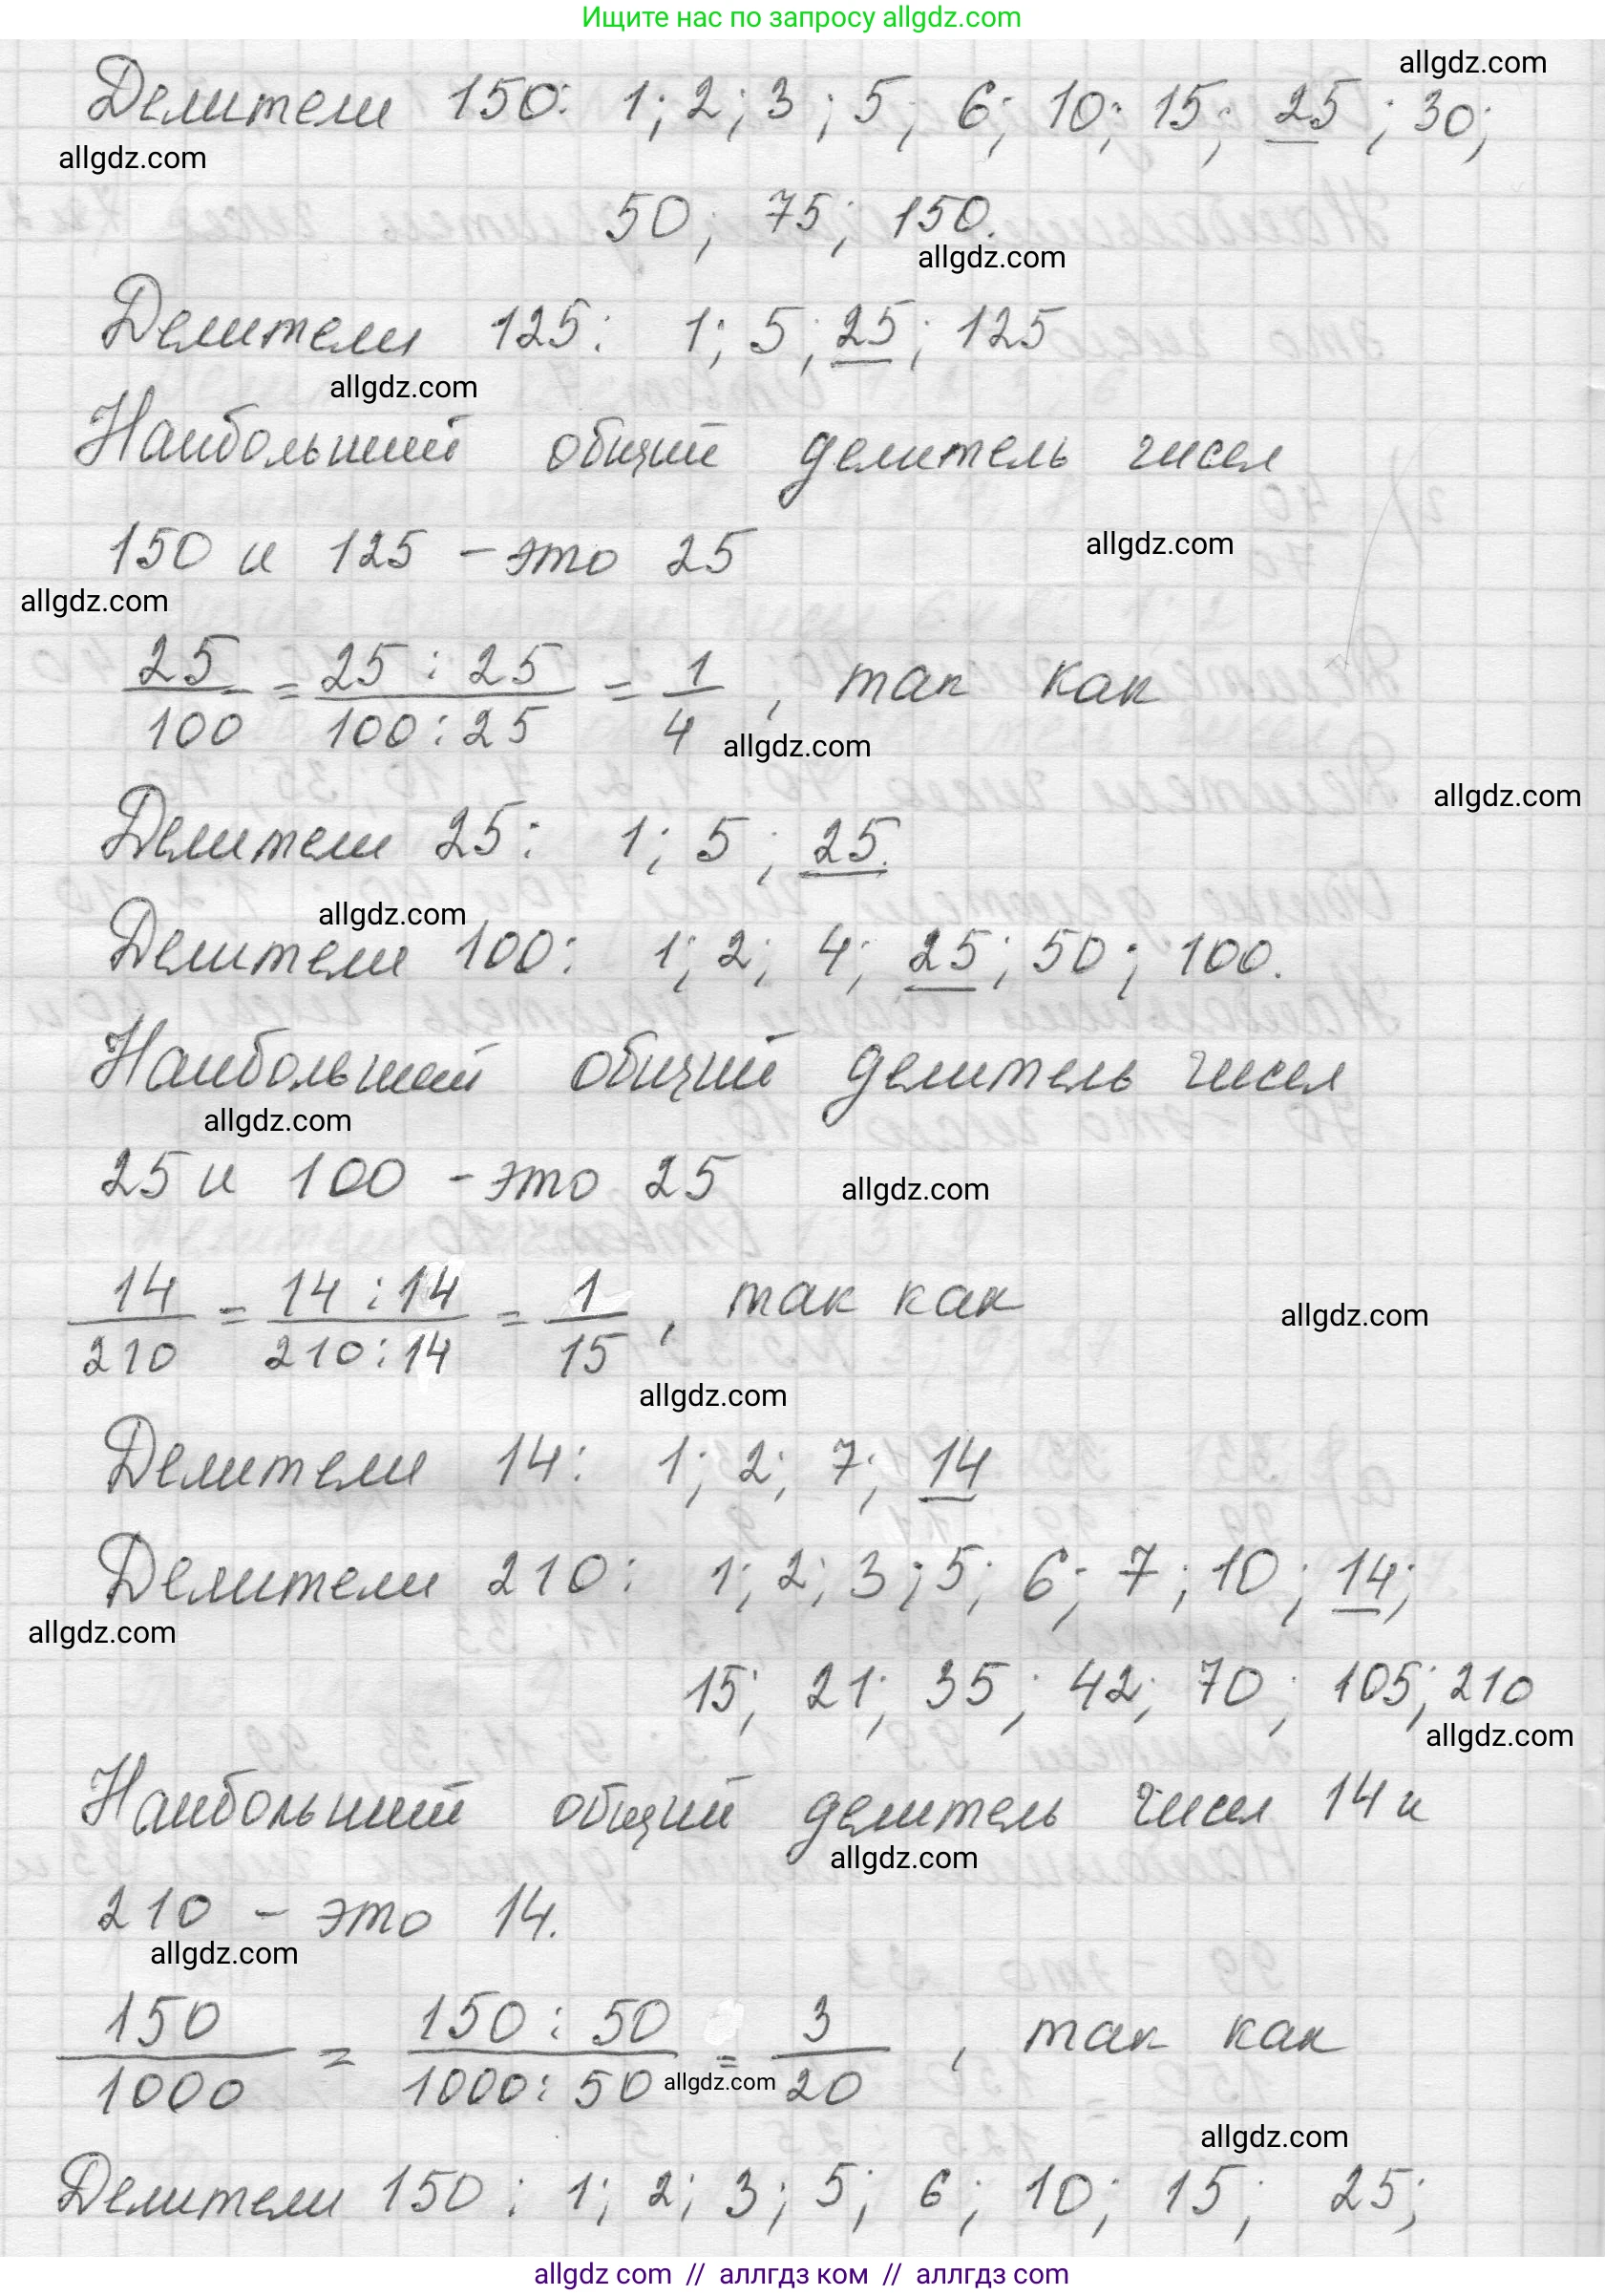 Ищите нас по запросу allgdz.com
allgdz.com
Делители 150: 1; 2; 3; 5; 6; 10; 15; 25; 30;
allgdz.com
50; 75; 150.
allgdz.com
Делители 125: 1; 5; 25; 125
allgdz.com
Наибольший общий делитель чисел
150 и 125 - это 25
allgdz.com
allgdz.com
25/100 = 25 : 25/100 : 25 = 1/4, так как
allgdz.com
allgdz.com
Делители 25: 1; 5; 25.
allgdz.com
Делители 100: 1; 2; 4; 25; 50; 100.
Наибольший общий делитель чисел
allgdz.com
25 и 100 - это 25
allgdz.com
14/210 = 14 : 14/210 : 14 = 1/15, так как
allgdz.com
allgdz.com
Делители 14: 1; 2; 7; 14
Делители 210: 1; 2; 3; 5; 6; 7; 10; 14;
allgdz.com
15; 21; 35; 42; 70; 105; 210
allgdz.com
Наибольший общий делитель чисел 14 и
allgdz.com
210 - это 14.
allgdz.com
150/1000 = 150 : 50/1000 : 50 = 3/20, так как
allgdz.com
allgdz.com
Делители 150: 1; 2; 3; 5; 6; 10; 15; 25;
allgdz com // аллгдз ком // аллгдз com